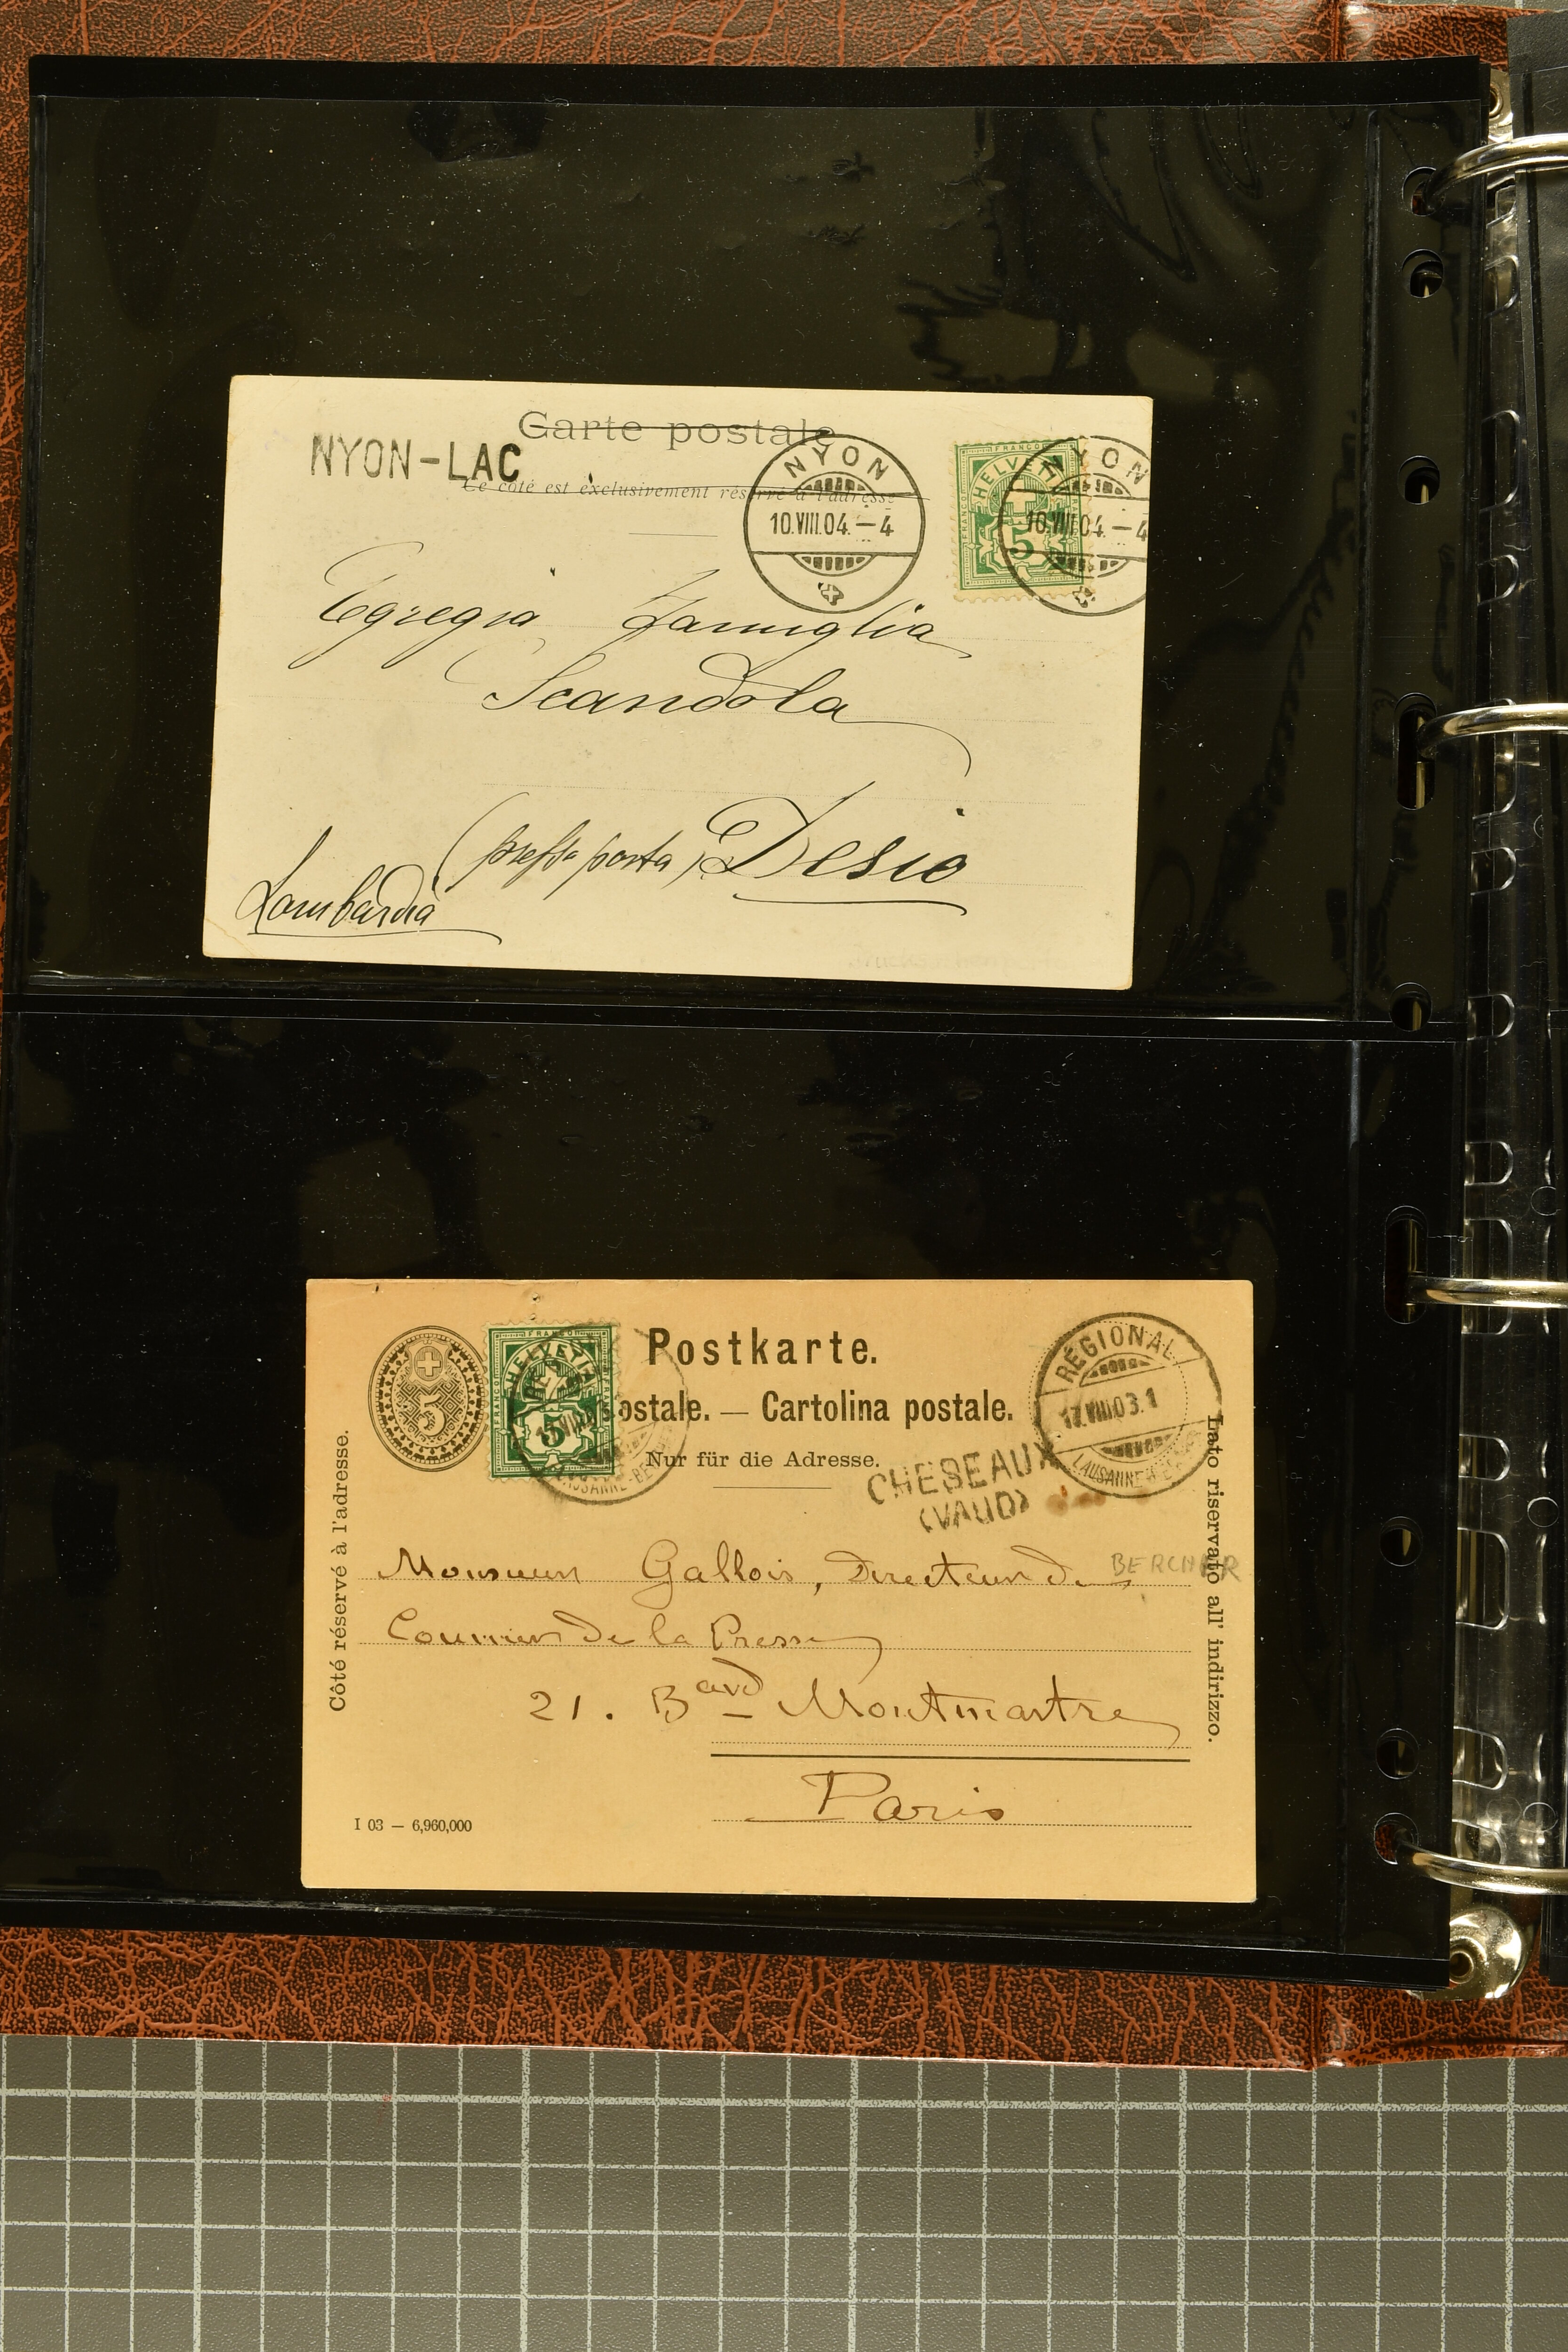 Carte postale
NYON-LAC
Ce côté est exclusivement réservé à l'adresse
NYON
10.VIII.04.–4
FRANCO
HELVETIA
FRANCO
5
NYON
10.VIII.04.–4
Egregia Famiglia
Scandola
(presso posta) Desio
Lombardia
5
FRANCO
HELVETIA
FRANCO
5
LAUSANNE-BE
Postkarte.
ostale. — Cartolina postale.
Nur für die Adresse.
RÉGIONAL
17.VIII.03.1
LAUSANNE
CHESEAUX
(VAUD)
Côté réservé à l'adresse.
Lato riservato all' indirizzo.
Monsieur Gallois, Directeur du
BERCHER
Courrier de la Presse
21. Bard Montmartre
Paris
I 03 — 6,960,000